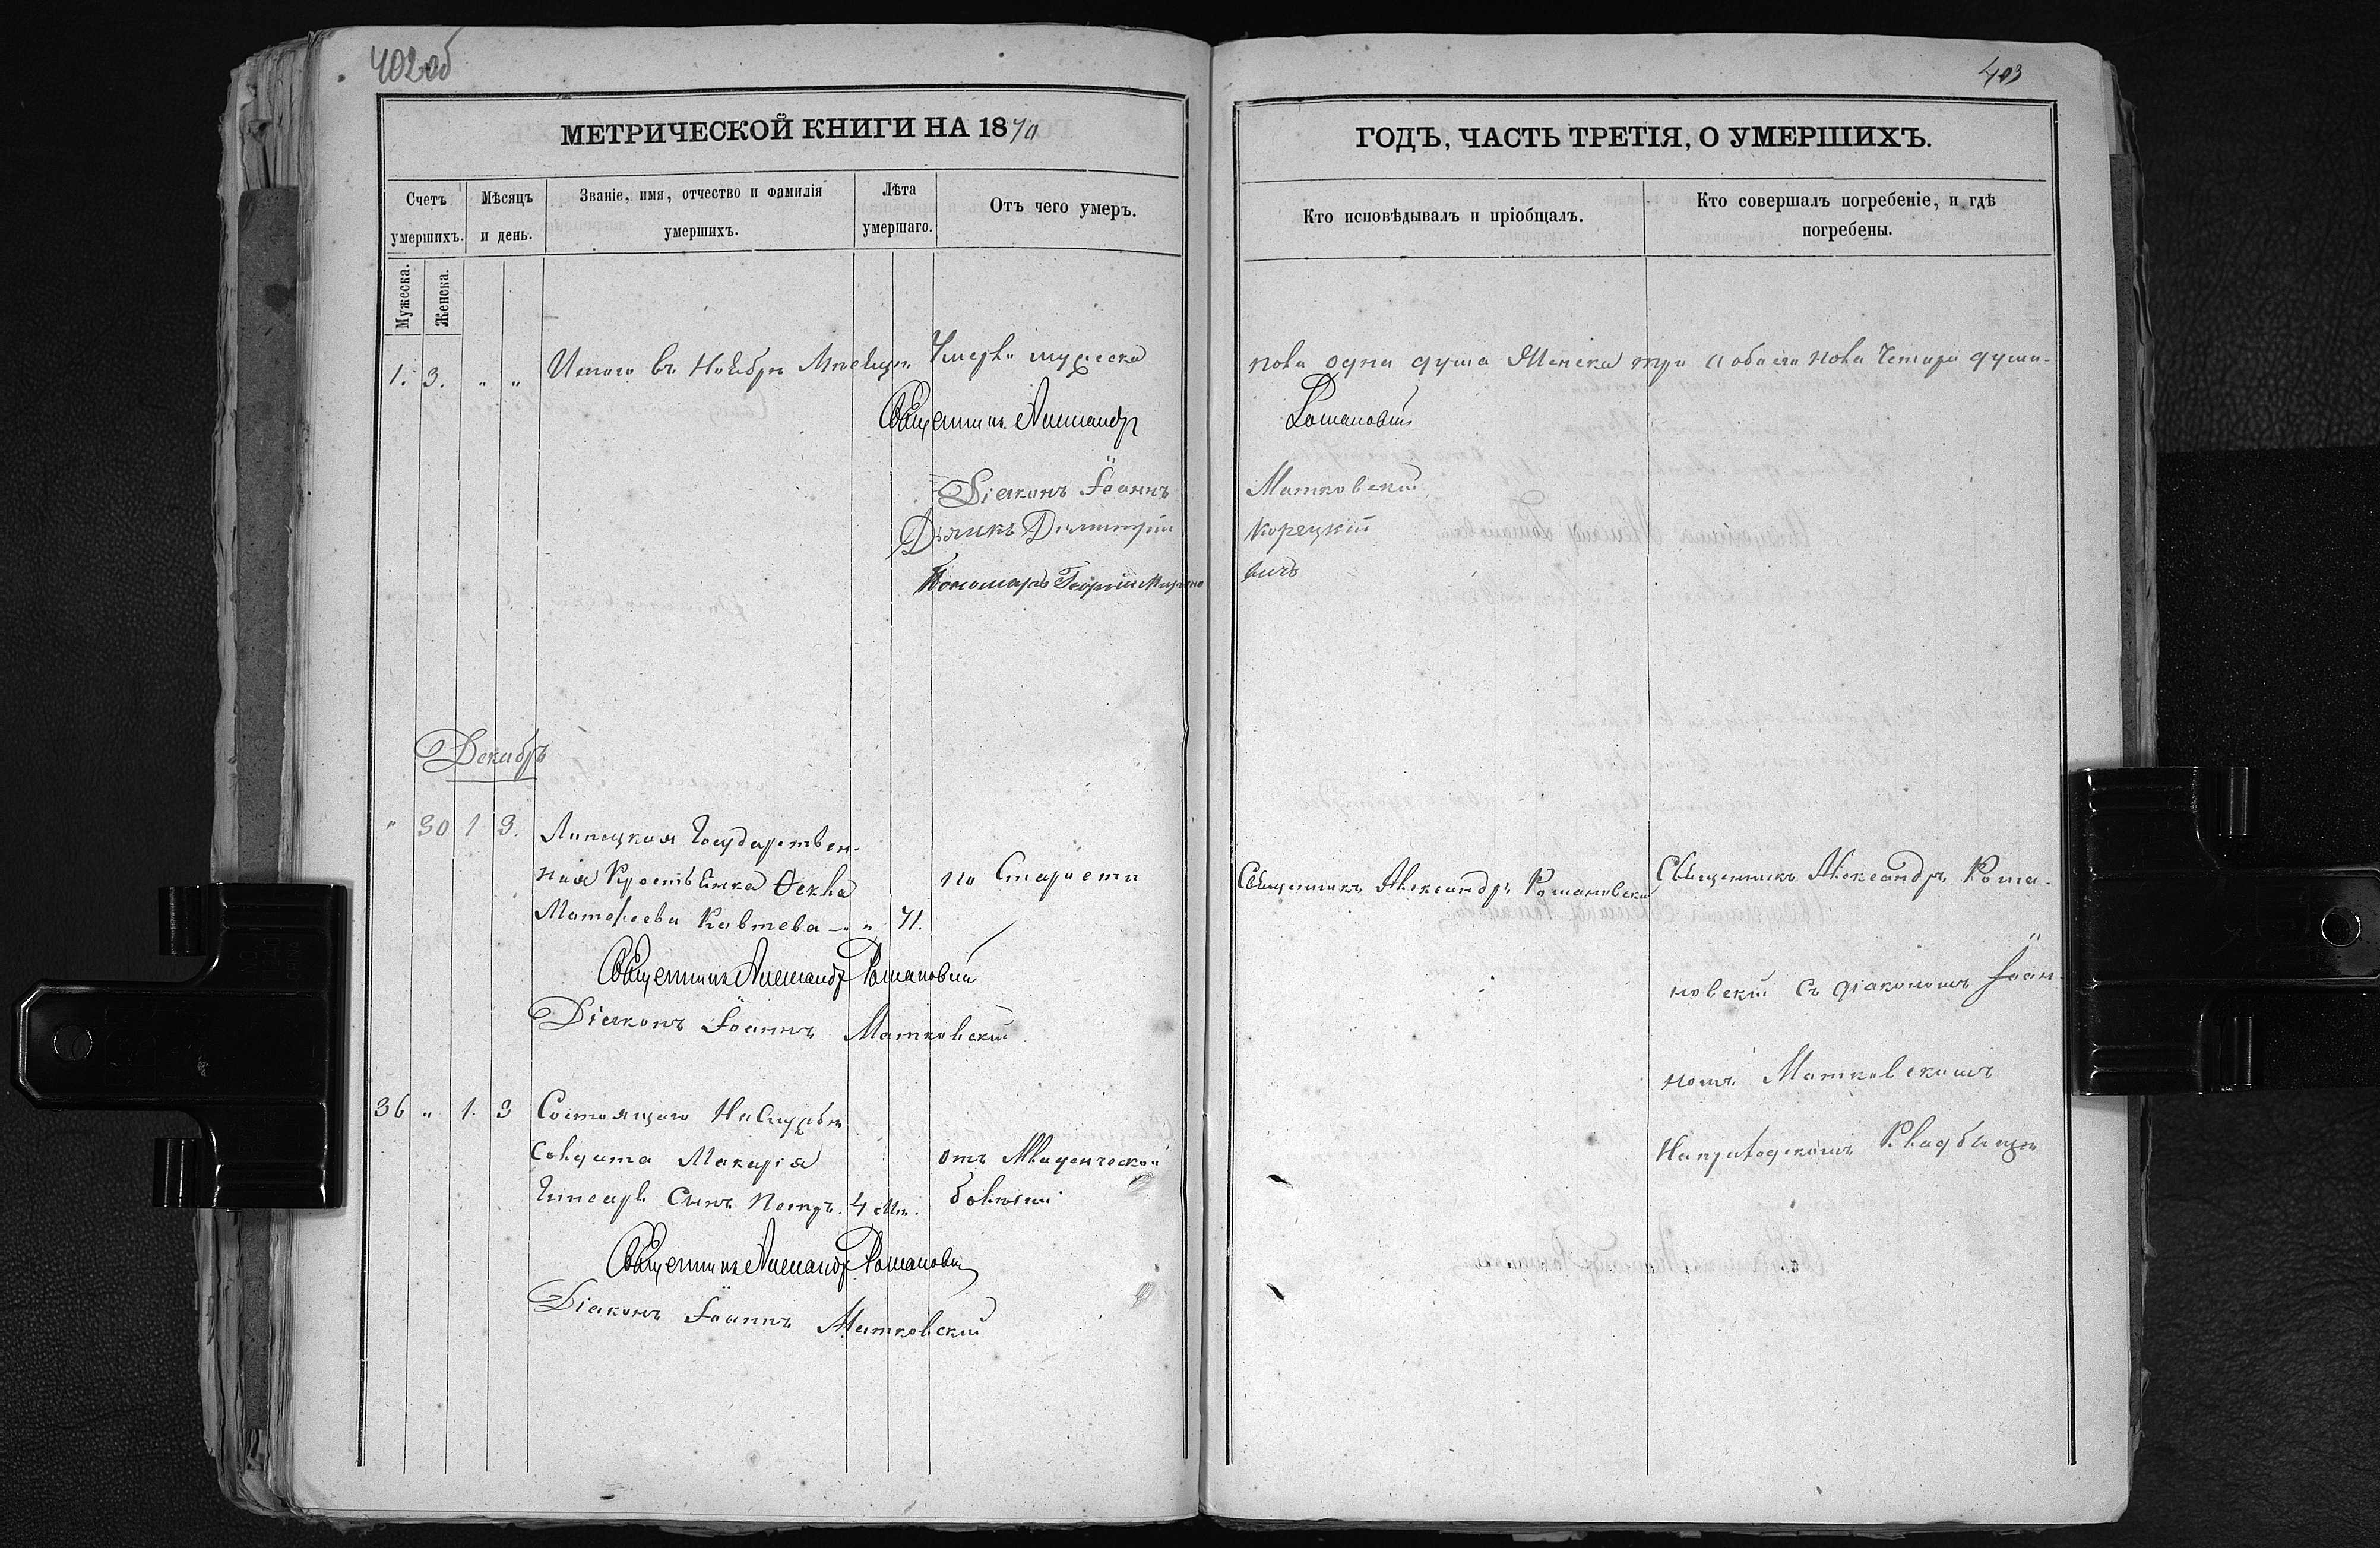 402об
МЕТРИЧЕСКОЙ КНИГИ НА 1870
Счетъ умершихъ.
Мѣсяцъ и день.
Званіе, имя, отчество и фамилія умершихъ.
Лѣта умершаго.
Отъ чего умеръ.
Мужеска.
Женска.
1. 3. " " Итого въ Ноябрѣ Мѣсяцѣ Умерло мужеска
Священникъ Александръ
Діаконъ Іоаннъ
Дьячикъ Димитрій
Пономарь Георгій
Декабрь
" 30 1 3. Липецкая Государствен-
ная Крестьянка Ѳекла
Матфеева " 71.
по Старости
Священникъ Александръ Романовскій
Діаконъ Іоаннъ Матковскій
36 " 1. 3 Состоящаго На Службѣ
Солдата Макарія
Сынъ Петръ. 4 м.
отъ Младенческой
болѣзни
Священникъ Александръ Романовскій
Діаконъ Іоаннъ Матковскій
403
ГОДЪ, ЧАСТЬ ТРЕТІЯ, О УМЕРШИХЪ.
Кто исповѣдывалъ и пріобщалъ.
Кто совершалъ погребеніе, и гдѣ погребены.
пола одна душа Женска три а обоего пола Четыре души.
Романовскій
Матковскій
Корецкій
вичъ
Священникъ Александръ Романовскій
Священникъ Александръ Рома-
новскій съ діакономъ Іоан-
номъ Матковскимъ
На приходскомъ Кладбищѣ